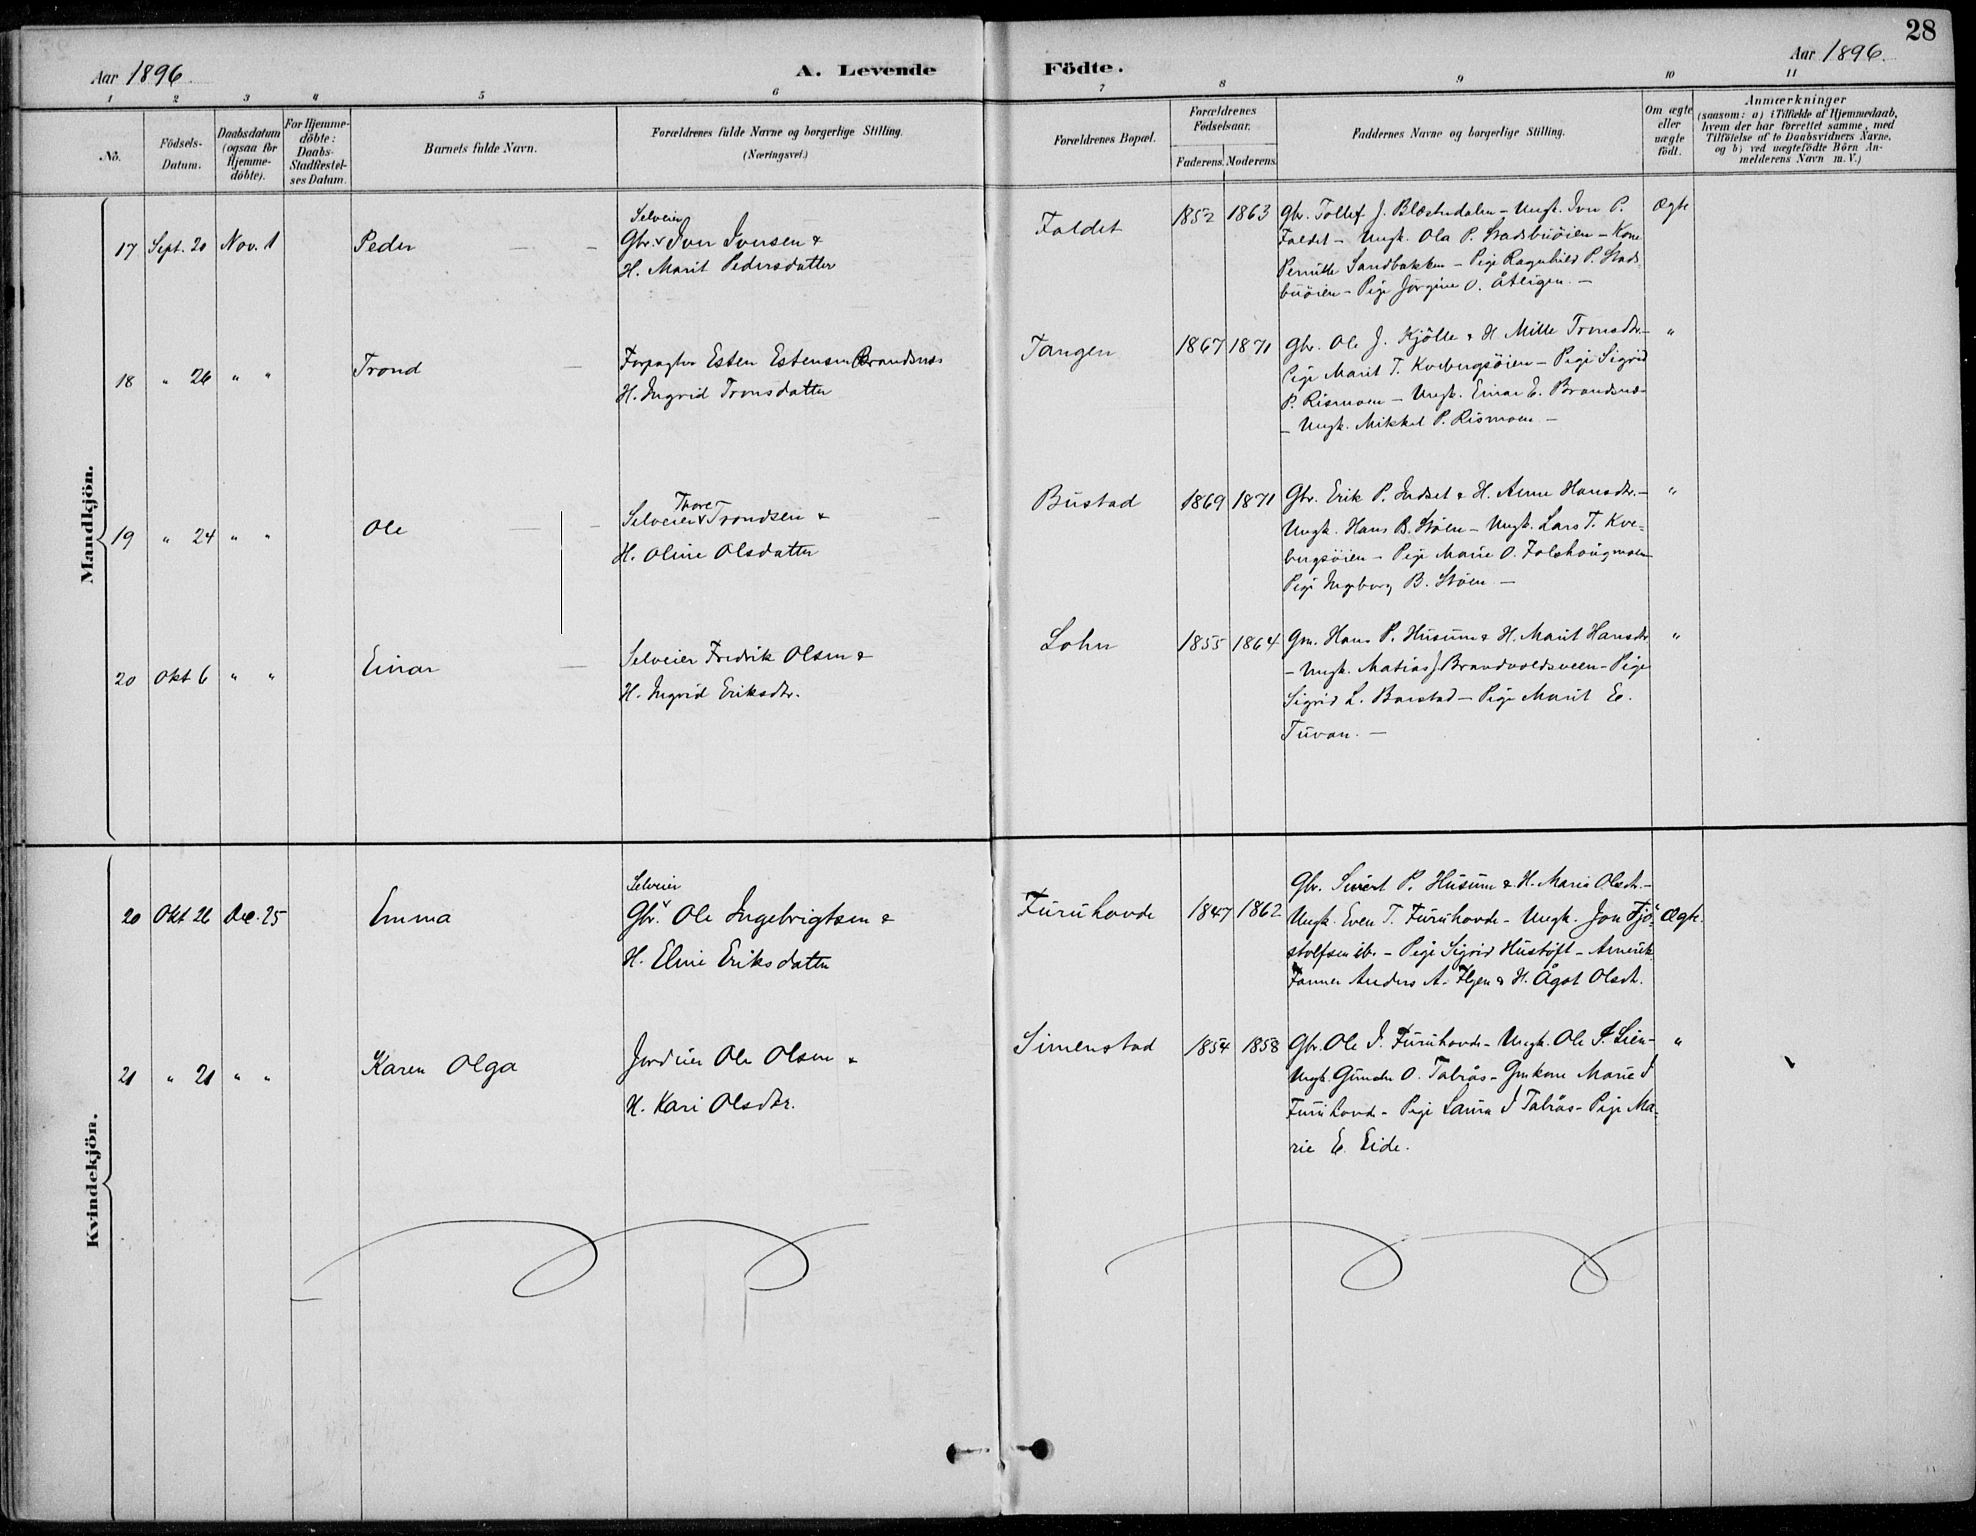 28
Aar 1896.
A. Levende
Födte.
Aar 1896.
1 2 3 4 5 6 7 8 9 10 11
No.
Födsels-
Datum.
Daabsdatum
(ogsaa for
Hjemme-
döbte).
For Hjemme-
döbte:
Daabs-
Stadfæstel-
ses Datum.
Barnets fulde Navn.
Forældrenes fulde Navne og borgerlige Stilling.
(Næringsvei.)
Forældrenes Bopæl.
Forældrenes
Födselsaar.
Faderens. Moderens.
Faddernes Navne og borgerlige Stilling.
Om ægte
eller
uægte
födt.
Anmærkninger
(saasom: a) i Tilfælde af Hjemmedaab,
hvem der har forrettet samme, med
Tilföielse af to Daabsvidners Navne,
og b) ved uægtefödte Börn An-
melderens Navn m. V.)
Mandkjön.
17 Sept. 20 Nov. 1 Peder
Selveier
Gbr. Iver Iversen &
H. Marit Pedersdatter
Foldet 1852 1863
Gbr. Tollef J. Blæsterdalen - Ungk. Iver P.
Foldet - Ungk. Ola P. Stadsbuöien - Kone
Pernille Sandbakken - Pige Ragnhild P. Stads
buöien - Pige Jörgine O. Åtligen. -
Ægte
18 " 26 " " Trond
Forpagter Esten Estensen Brandsnes
H. Ingrid Tronsdatter
Tangen 1867 1871
Gbr. Ole J. Kjölle & H. Mille Tronsdtr. -
Pige Marit T. Kvebergsöien - Pige Sigrid
P. Rismoen - Ungk. Einar E. Brandsnes
- Ungk. Mikkel P. Rismoen -
"
19 " 24 " " Ole
Thore
Selveier Trondsen &
H. Oline Olsdatter
Bustad 1869 1871
Gbr. Erik P. Indset & H. Anne Hansdtr. -
Ungk. Hans B. Stöen - Ungk. Lars T. Kve-
bergsöien - Pige Marie O. Folshaugmoen
Pige Ingeborg B. Stöen -
"
20 Okt 6 " " Einar
Selveier Fredrik Olsen &
H. Ingrid Eriksdtr.
Lohn 1855 1864
Gm. Hans P. Husum & H. Marit Hansdtr
- Ungk. Matias J Brandvoldsveen - Pige
Sigrid L. Barstad - Pige Marit E.
Tuvan. -
"
Kvindekjön.
20 Okt 26 Dec. 25 Emma
Selveier
Gbr. Ole Ingebrigtsen &
H. Eline Eriksdatter
Furuhovde 1847 1862
Gbr. Sivert P. Husum & H. Maria Olsdtr. -
Ungk. Even T. Furuhovde - Ungk. Jon Fjö-
stolfsen ib. - Pige Sigrid Hustöft - Amerik.
Farmer Anders A. Elgen & H. Ågot Olsdtr.
Ægte.
21 " 21 " " Karen Olga
Jordeier Ole Olsen &
H. Kari Olsdtr.
Simenstad 1854 1858
Gbr. Ole I. Furuhovde - Ungk. Ole S. Lien -
Ungk. Gunder O. Tabrås - Gmkone Marie I
Furuhovde - Pige Laura I Tabrås - Pige Ma-
rie E. Eide.
"